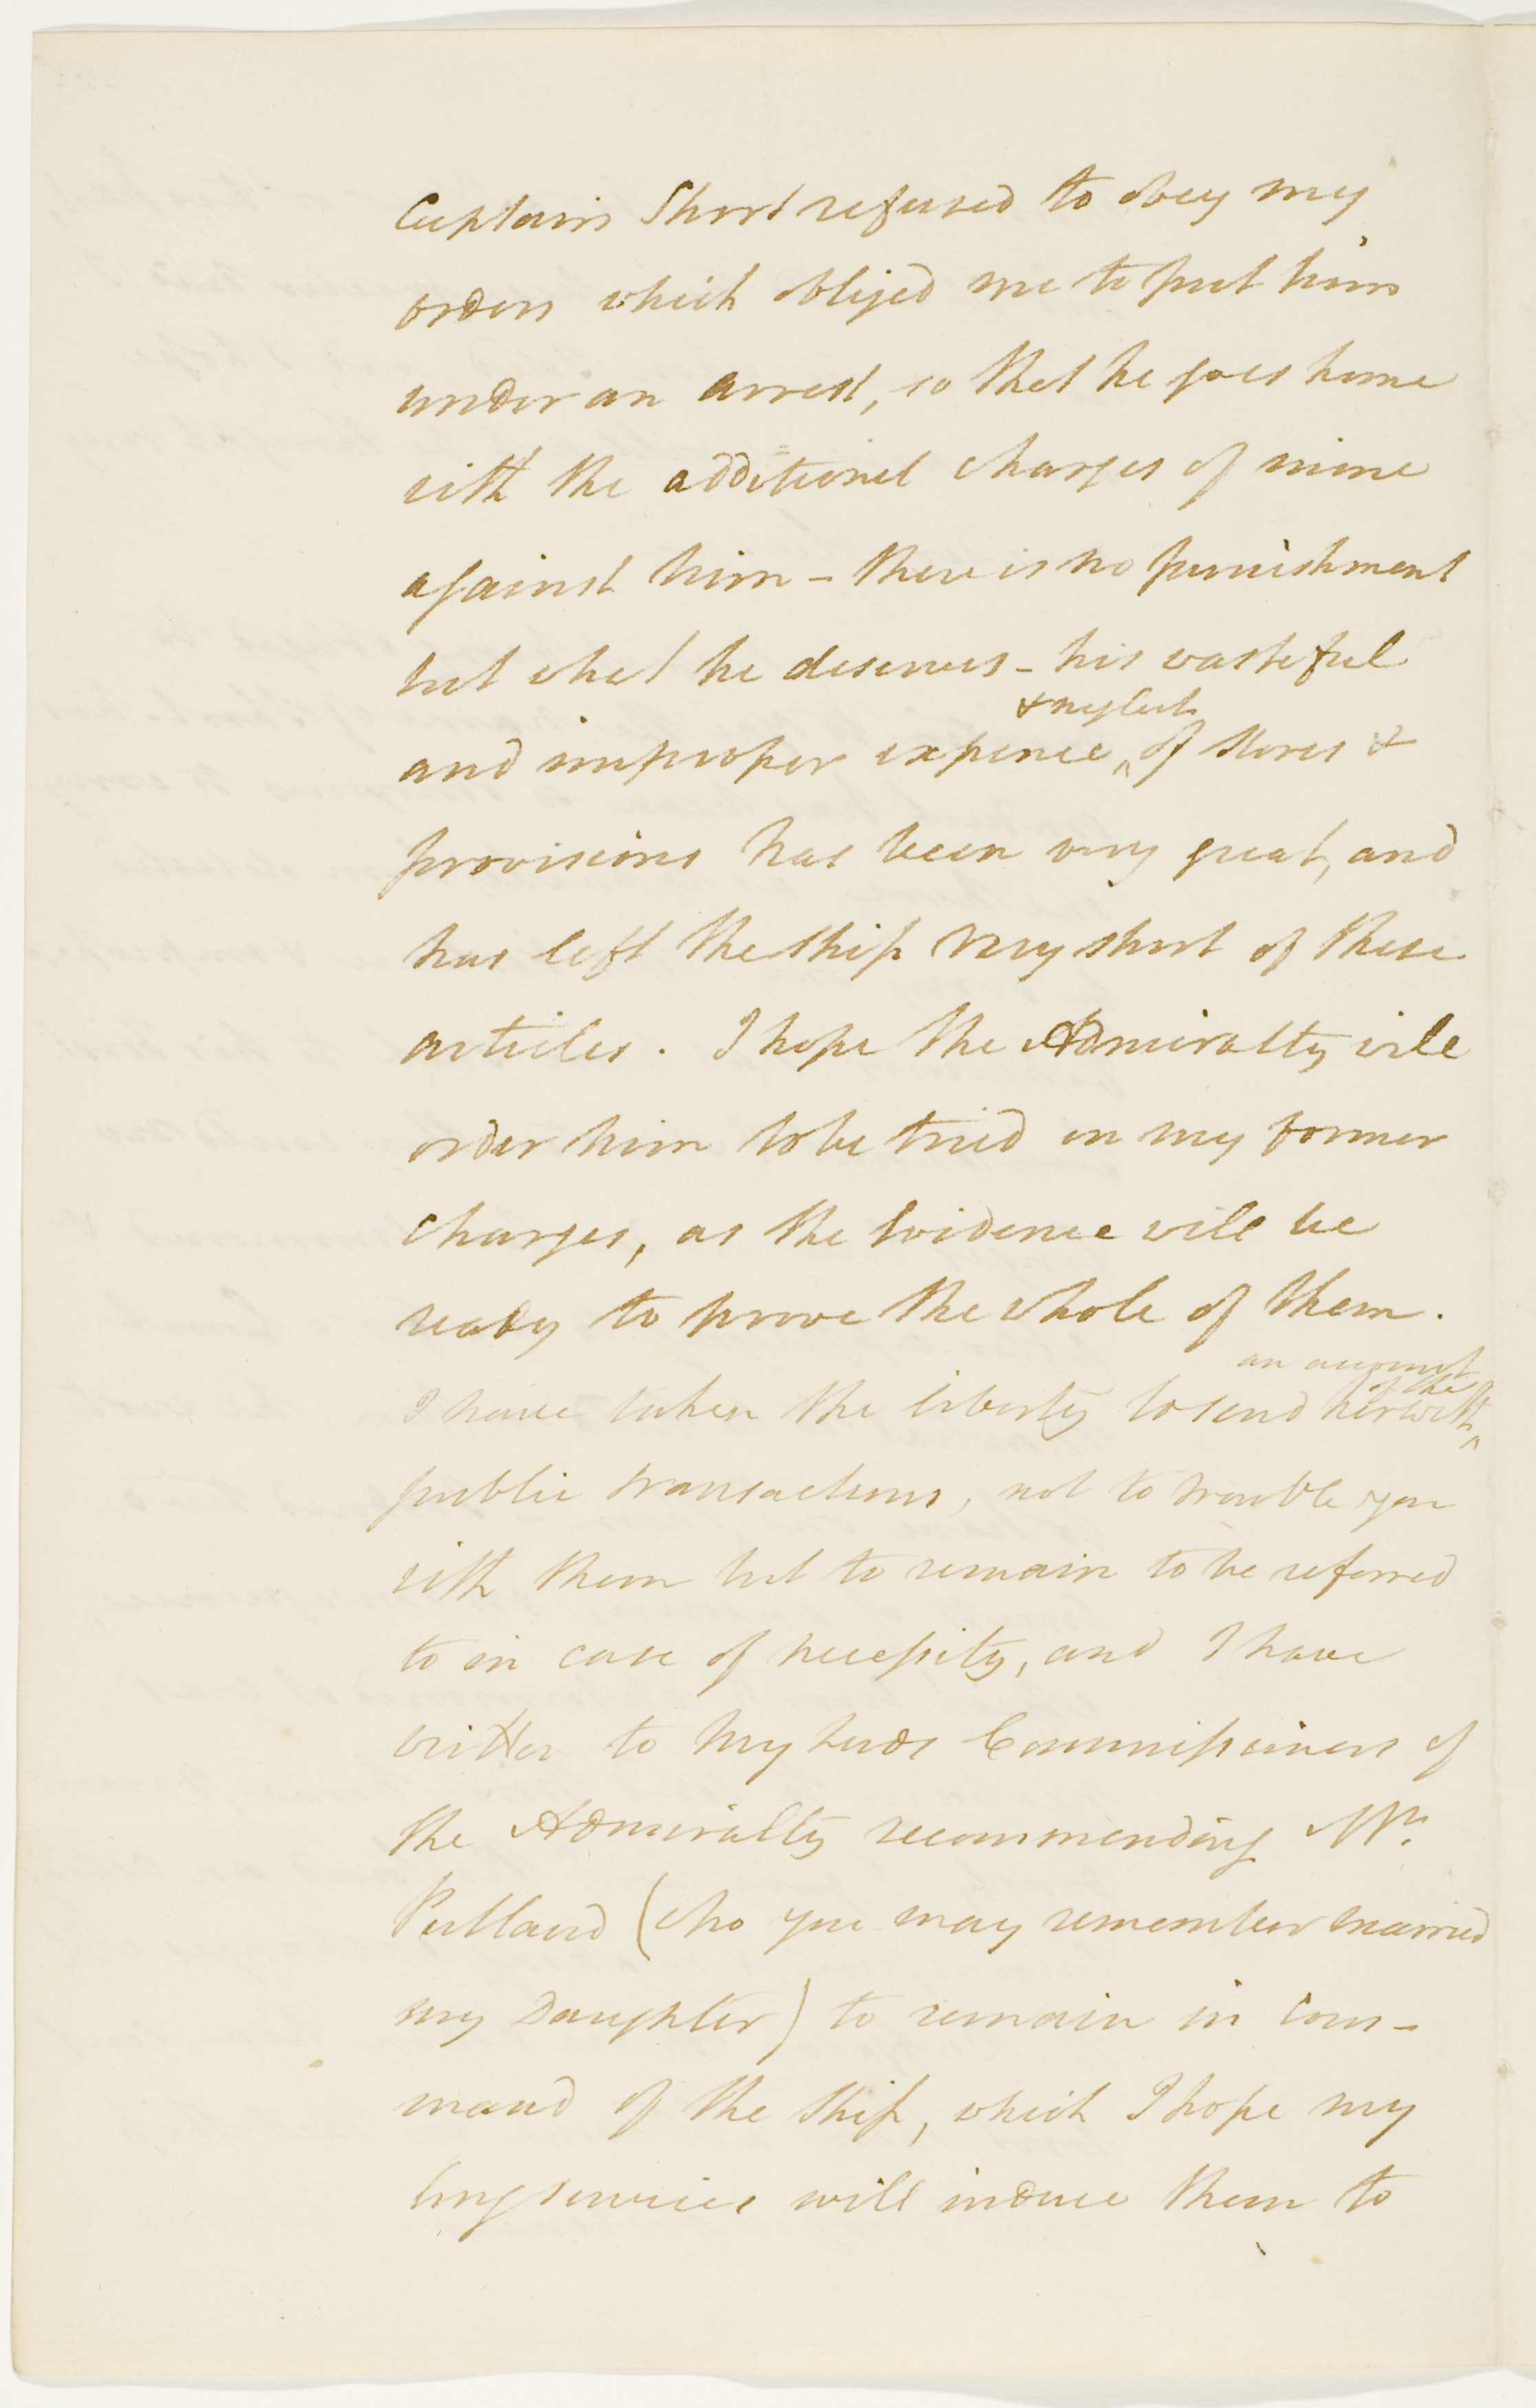 Captain Short refused to obey my
orders which obliged me to put him
under an arrest, so that he goes home
with the additional charges of mine
against him - there is no punishment
but what he deserves - his wasteful
& neglect
and improper expence ^ of stores &
provisions has been very great, and
has left the ship very short of these
articles. I hope the Admiralty will
order him to be tried on my former
charges, as the Evidence will be
ready to prove the whole of them.
an account
of the
I have taken the liberty to send herewith ^
public transactions, not to trouble you
with them but to remain to be referred
to in case of necessity, and I have
written to My Lords Commissioners of
the Admiralty recommending Mr.
Putland (who you may remember married
my Daughter) to remain in Com-
mand of the Ship, which I hope my
long services will induce them to